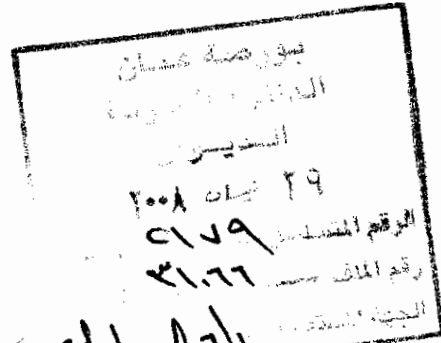 بورصة عمان
الدائرة الإدارية
الديوان
٢٩ نيسان ٢٠٠٨
الرقم المتسلسل ٢١٧٩
رقم الملف ٣١٠٦٦
الجهة المختصة